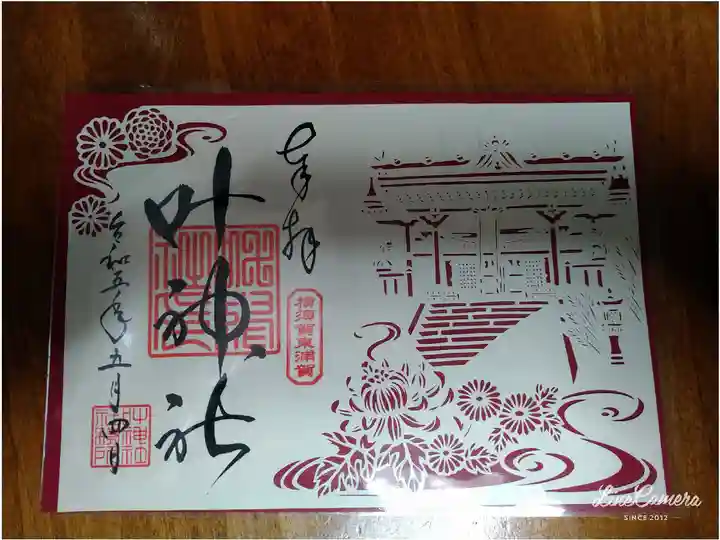 奉拝
横須賀東浦賀
叶神社
令和五年五月四日
Line Camera
SINCE 2012